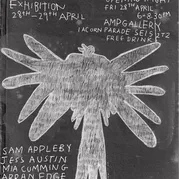 EXHIBITION
28TH - 29TH APRIL
FRI 28TH APRIL
6-8.30PM
AMP GALLERY
1 ACORN PARADE SE15 2TZ
FREE DRINK
SAM APPLEBY
JESS AUSTIN
MIA CUMMING
ARRAN EDGE